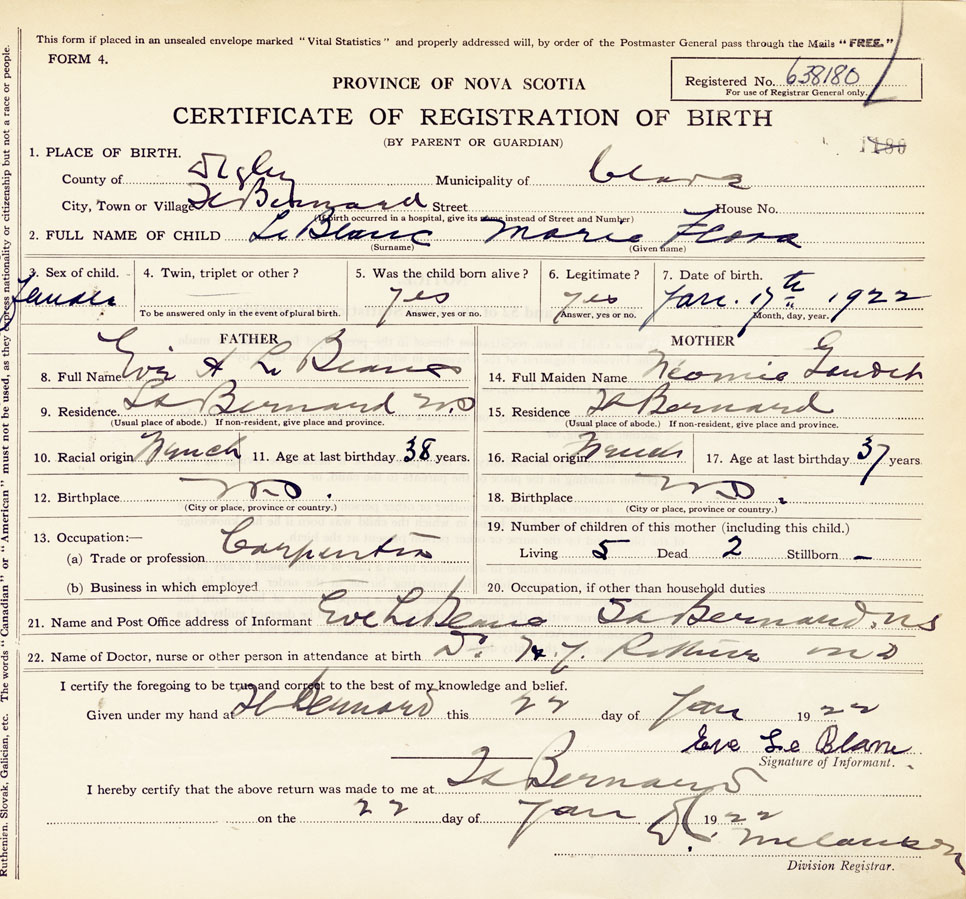 This form if placed in an unsealed envelope marked "Vital Statistics" and properly addressed will, by order of the Postmaster General pass through the Mails "FREE."
FORM 4.
Registered No. 638180
For use of Registrar General only.
PROVINCE OF NOVA SCOTIA
CERTIFICATE OF REGISTRATION OF BIRTH
(BY PARENT OR GUARDIAN)
1. PLACE OF BIRTH.
County of Digby Municipality of Clare
City, Town or Village St Bernard Street House No.
(If birth occurred in a hospital, give its name instead of Street and Number)
2. FULL NAME OF CHILD Le Blanc Marie Flora
(Surname) (Given name)
3. Sex of child. 4. Twin, triplet or other? 5. Was the child born alive? 6. Legitimate? 7. Date of birth.
Female yes yes Jan. 17th 1922
To be answered only in the event of plural birth. Answer, yes or no. Answer, yes or no. Month, day, year.
FATHER
8. Full Name A Le Blanc
9. Residence St Bernard N S
(Usual place of abode.) If non-resident, give place and province.
10. Racial origin French 11. Age at last birthday 38 years.
12. Birthplace N S.
(City or place, province or country.)
13. Occupation:—
(a) Trade or profession Carpenter
(b) Business in which employed
MOTHER
14. Full Maiden Name Neomie Gaudet
15. Residence St Bernard
(Usual place of abode.) If non-resident, give place and province.
16. Racial origin French 17. Age at last birthday 37 years
18. Birthplace N S.
(City or place, province or country.)
19. Number of children of this mother (including this child.)
Living 5 Dead 2 Stillborn –
20. Occupation, if other than household duties
21. Name and Post Office address of Informant Eve Le Blanc St Bernard. N S
22. Name of Doctor, nurse or other person in attendance at birth Dr. M D
I certify the foregoing to be true and correct to the best of my knowledge and belief.
Given under my hand at St Bernard this 22 day of Jan 1922
Eve Le Blanc
Signature of Informant.
I hereby certify that the above return was made to me at St Bernard
on the 22 day of Jan 1922
Melanson
Division Registrar.
Ruthenien, Slovak, Galician, etc. The words "Canadian" or "American" must not be used, as they express nationality or citizenship but not a race or people.